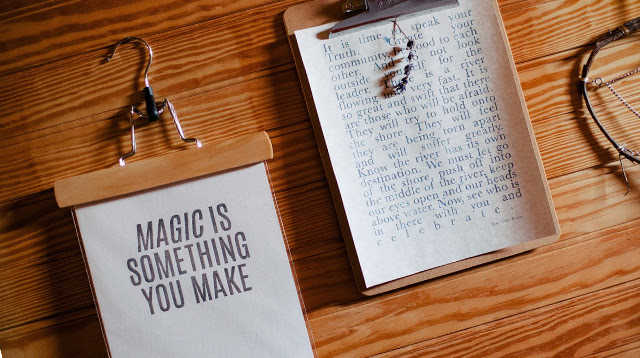 MAGIC IS
SOMETHING
YOU MAKE
It is time speak your
Truth. create your
Community. good to each
other. And not look
outside for the
leader. is a river
flowing very fast. It is
so great and swift that there
are those who will be afraid.
They will try to hold onto
the shore. They will feel
they are being torn apart
and will suffer greatly.
Know the river has its own
destination. We must let go
of the shore, push off into
the middle of the river, keep
our eyes open and our heads
above water. Now, see who is
in there with you and
celebrate.